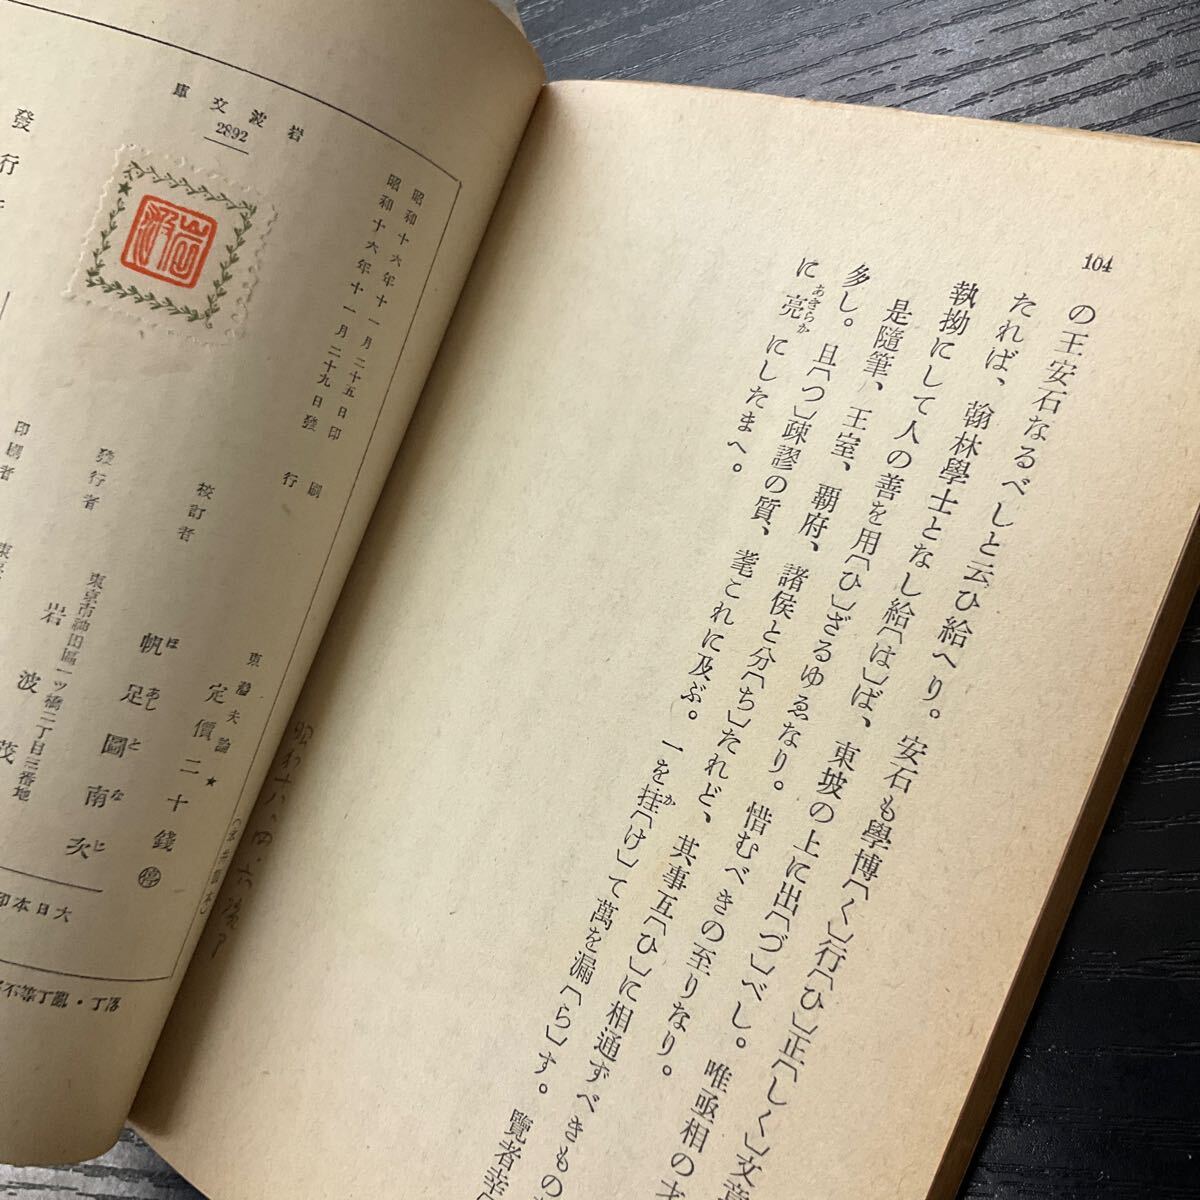 104
の王安石なるべしと云ひ給へり。安石も學博「く」行「ひ」正「しく」文章
たれば、翰林學士となし給「は」ば、東坡の上に出「づ」べし。唯亟相の才
執拗にして人の善を用「ひ」ざるゆゑなり。惜むべきの至りなり。
是隨筆、王室、覇府、諸侯と分「ち」たれど、其事互「ひ」に相通ずべきもの
多し。且「つ」疎謬の質、耄これに及ぶ。一を挂「け」て萬を漏「ら」す。覽者幸「
か
に亮にしたまへ。
あきらか
岩波文庫
2892
昭和十六年十一月二十五日印刷
昭和十六年十一月二十九日發行
東潛夫論
★
定價二十錢
停
校訂者
帆足圖南次
ほあしとなじ
發行者
東京市神田區一ツ橋二丁目三番地
岩波茂
印刷者
發行
大日本印
落丁・亂丁等不
昭和十八、四・六